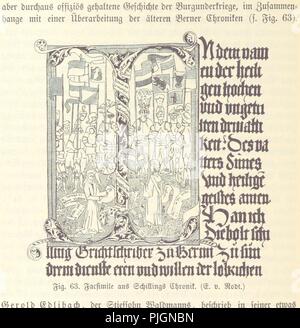 aber durchaus offiziös gehaltene Geschichte der Burgunderkriege, im Zusammen-
hange mit einer Überarbeitung der älteren Berner Chroniken (s. Fig. 63).
In dem nam
en der heili
gen hochen
vnd vngetei
lten
vnd heilige
geistes amen
Han ich
Diebolt schi
lling Grichtschriber Zu Bernn Zu sun
drem dienste eren vnd willen der loblichen
Fig. 63. Facsimile aus Schillings Chronik. (E. v. Rodt.)
Gerold Edlibach, der Stiefsohn Waldmanns, beschrieb in seiner etwas
alamy
PJGNBN